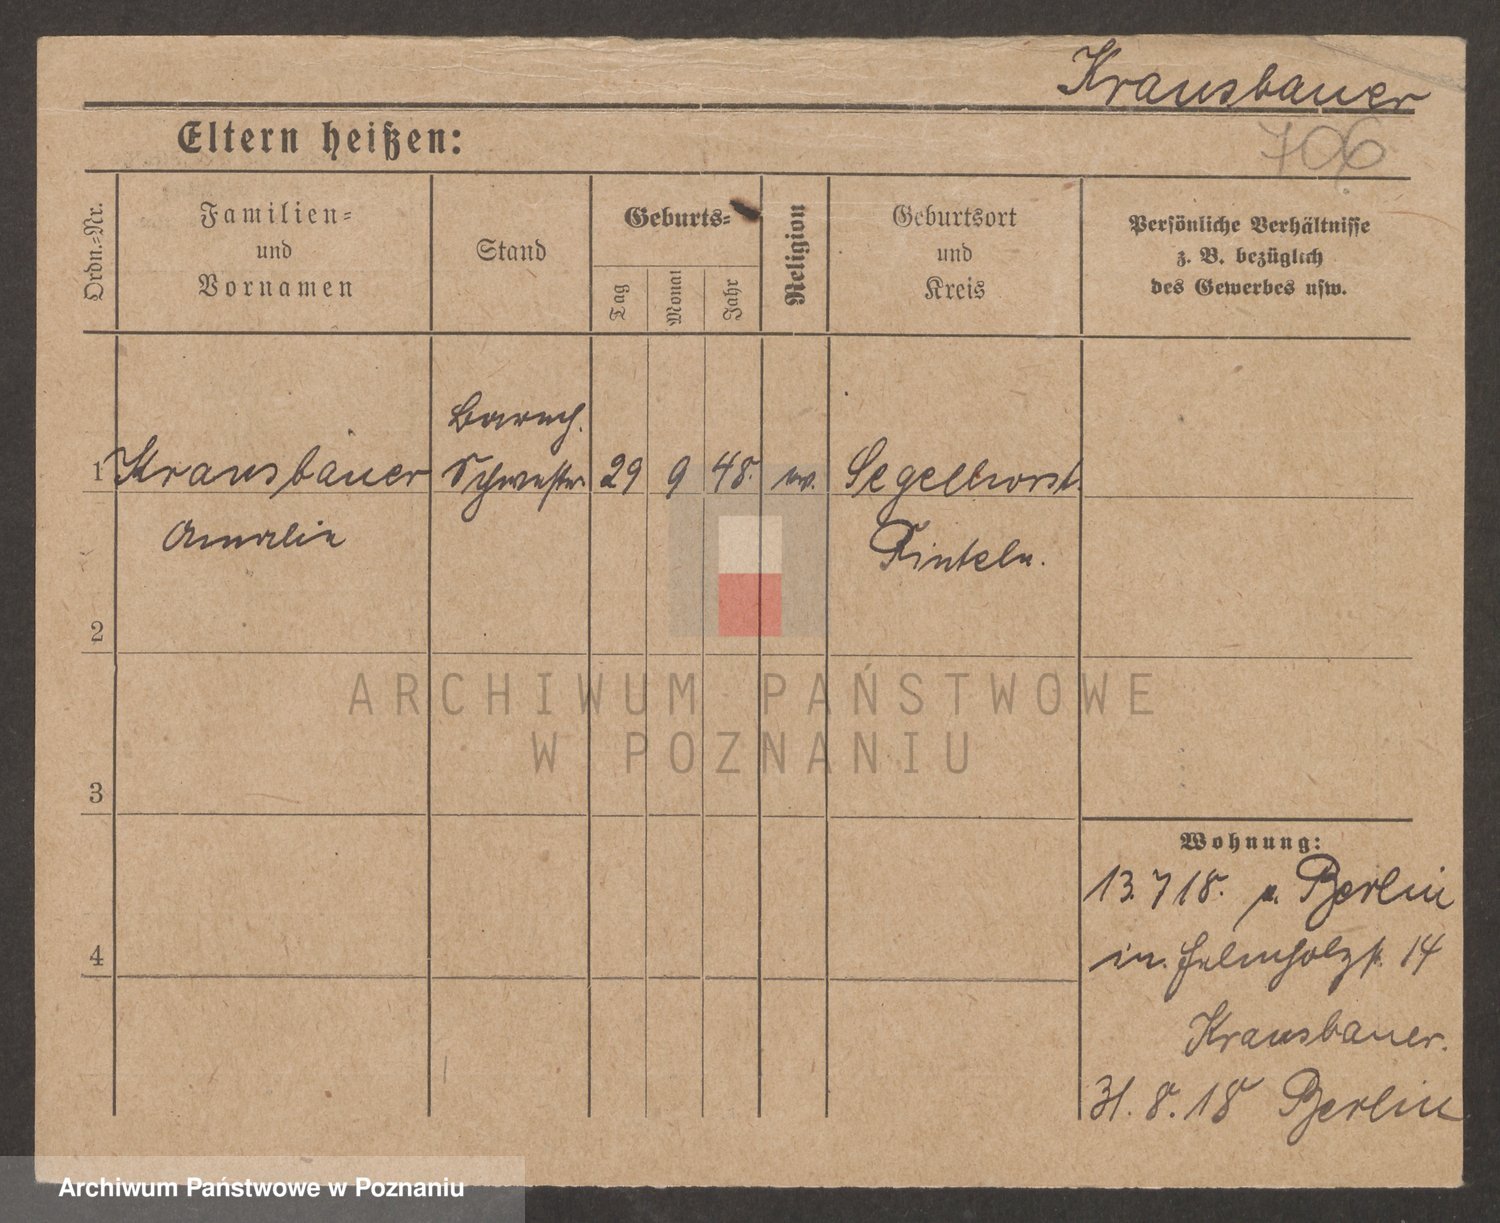 Krausbauer
Eltern heißen:
706
Ordn.-Nr.
Familien-
und
Vornamen
Stand
Geburts-
Tag
Monat
Jahr
Religion
Geburtsort
und
Kreis
Persönliche Verhältnisse
z. B. bezüglich
des Gewerbes usw.
Barmh.
1 Krausbauer Schwester 29 9 48. ev. Segelhorst
Amalie Rinteln.
2
ARCHIWUM PAŃSTWOWE
W POZNANIU
3
Wohnung:
13. 7 18. v. Berlin
in. Helmholzst. 14
4
Krausbauer.
31. 8. 18 Berlin
Archiwum Państwowe w Poznaniu